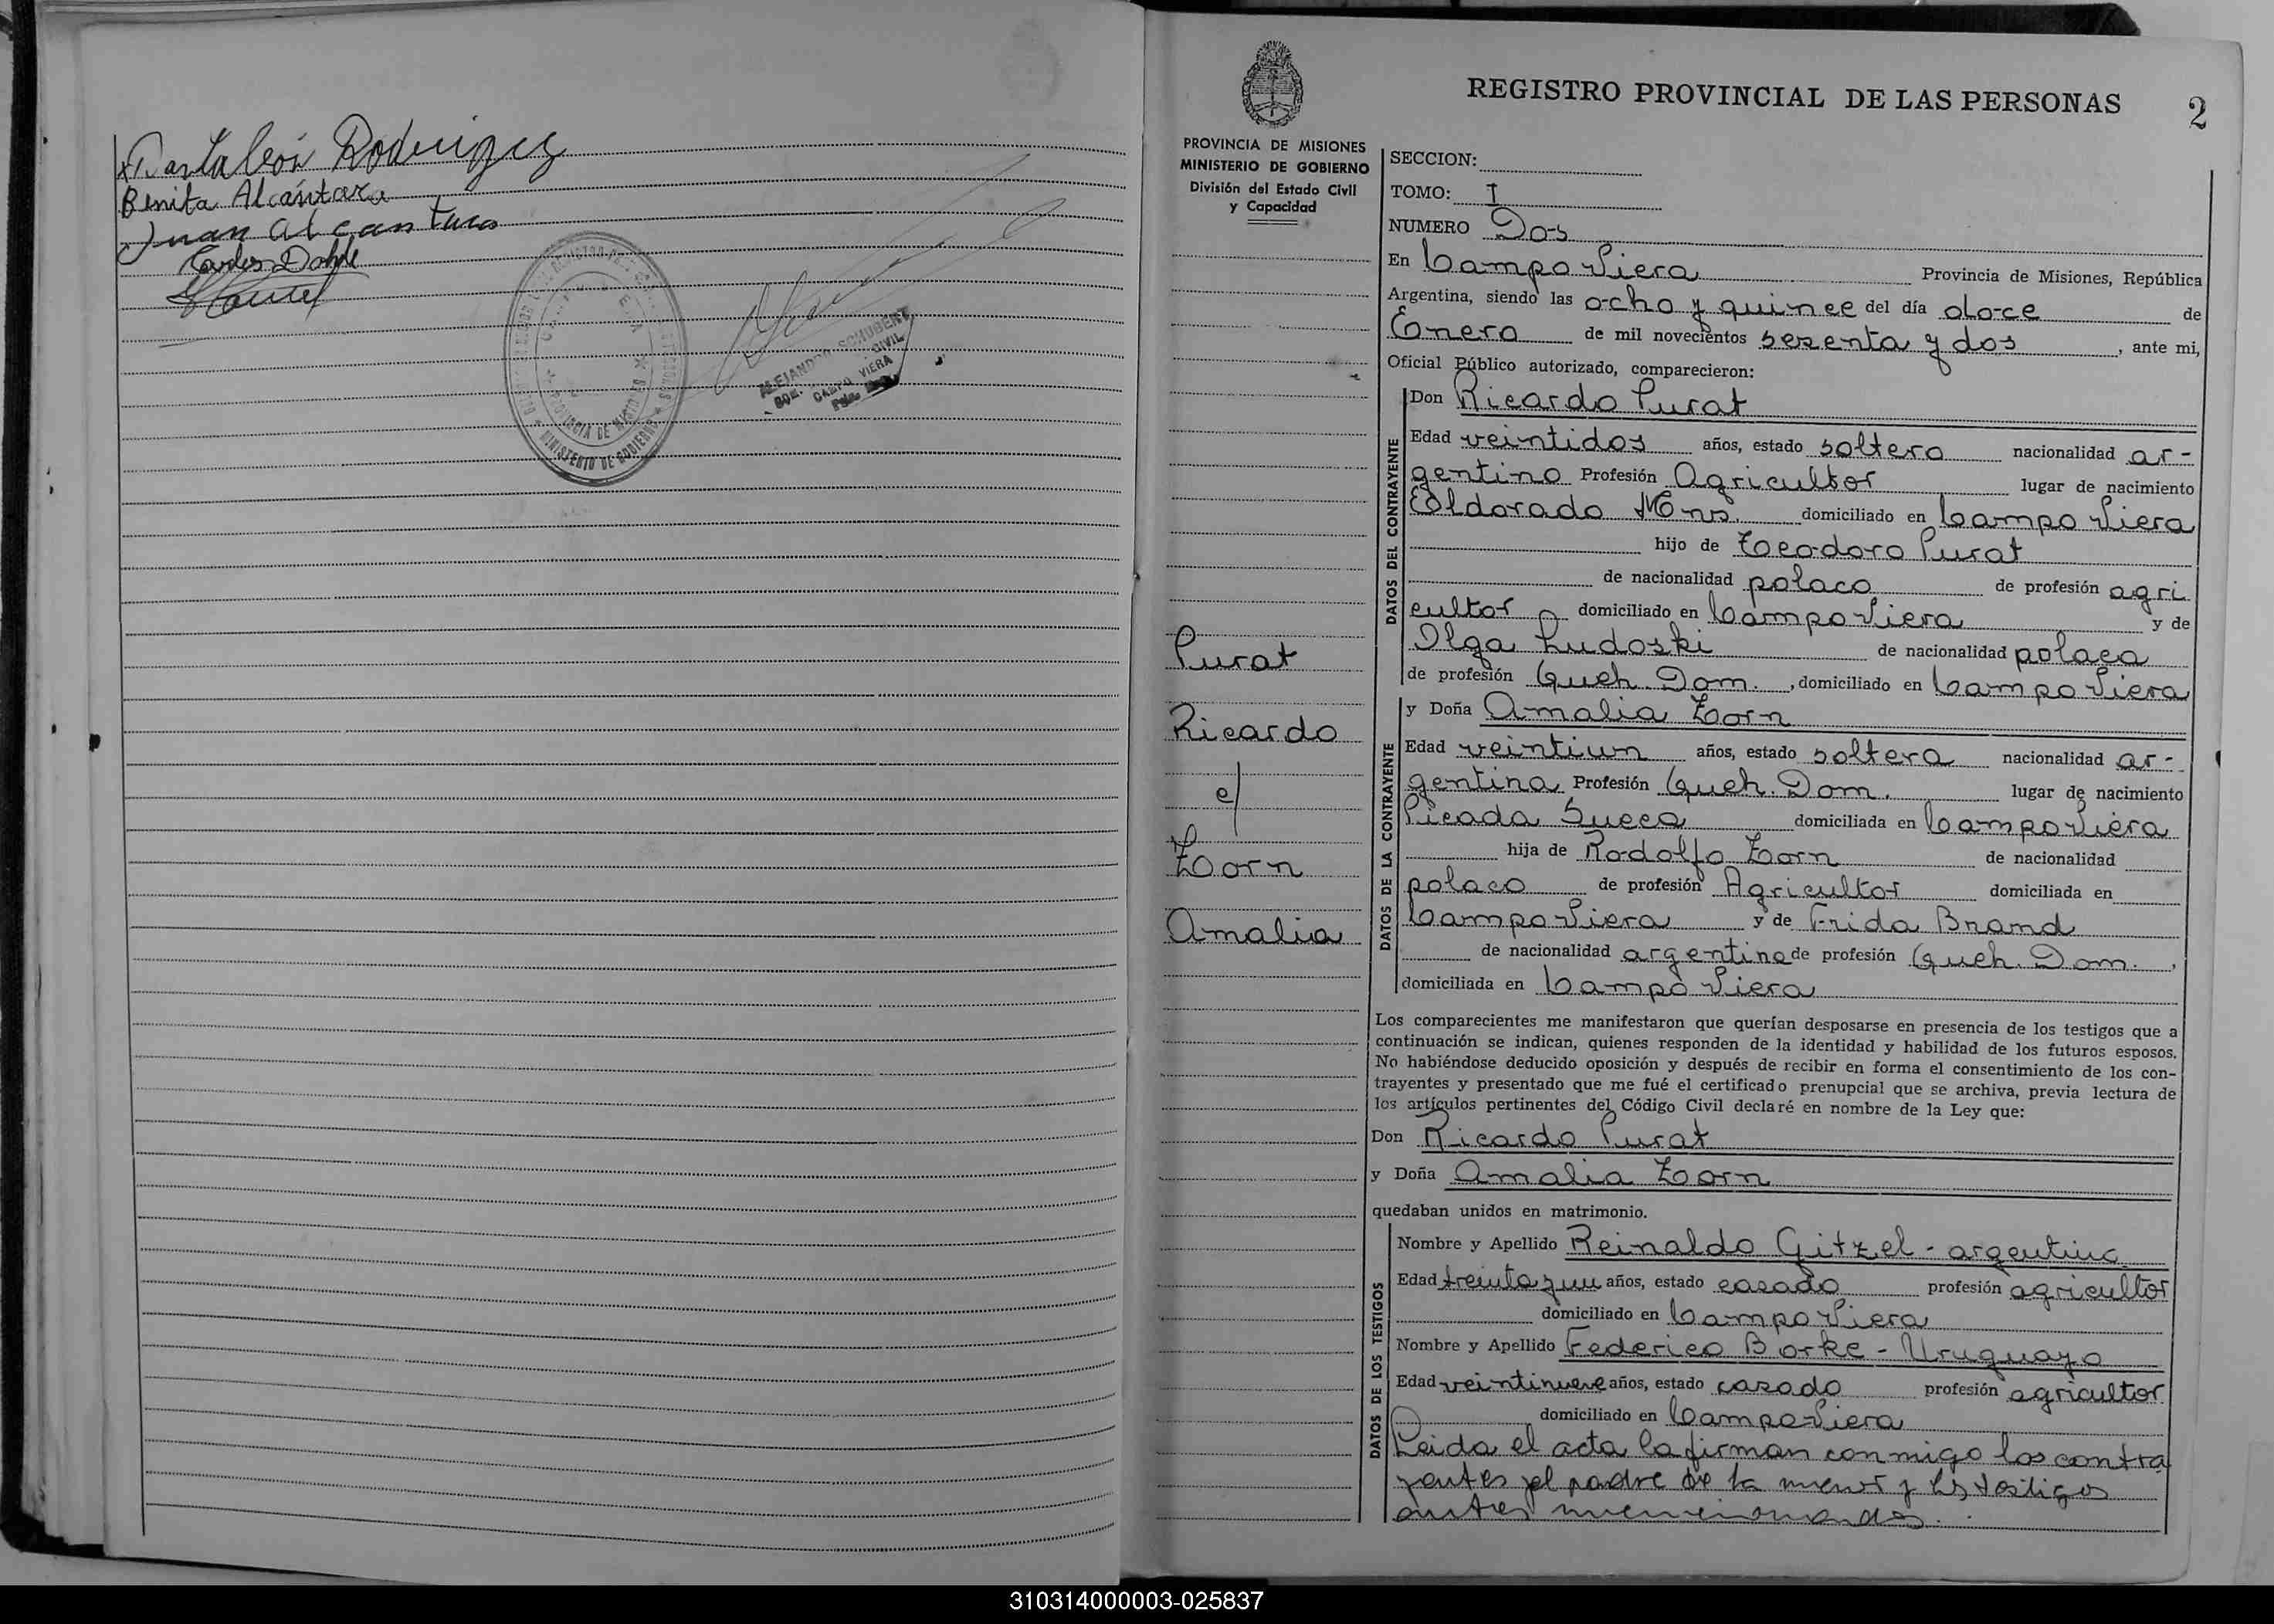 Pantaleón Rodriguez
Benita Alcántara
Juan Alcantara
Carlos Dahle
MINISTERIO DE GOBIERNO
PROVINCIA DE MISIONES
ALEJANDRO SCHUBERT
CIVIL
CAMPO VIERA
REGISTRO PROVINCIAL DE LAS PERSONAS 2
PROVINCIA DE MISIONES
MINISTERIO DE GOBIERNO
División del Estado Civil
y Capacidad
Purat
Ricardo
c/
Zorn
Amalia
SECCION:
TOMO: I
NUMERO Dos
En Campo Viera Provincia de Misiones, República
Argentina, siendo las ocho y quince del día doce de
Enero de mil novecientos sesenta y dos, ante mi,
Oficial Público autorizado, comparecieron:
DATOS DEL CONTRAYENTE
Don Ricardo Purat
Edad veintidos años, estado soltero nacionalidad ar-
gentino Profesión Agricultor lugar de nacimiento
Eldorado Mns. domiciliado en Campo Viera
hijo de Teodoro Purat
de nacionalidad polaco de profesión agri
cultor domiciliado en Campo Viera y de
Olga Ludoski de nacionalidad polaca
de profesión Queh. Dom., domiciliado en Campo Viera
DATOS DE LA CONTRAYENTE
y Doña Amalia Zorn
Edad veintiun años, estado soltera nacionalidad ar-
gentina Profesión Queh. Dom. lugar de nacimiento
Picada Sueca domiciliada en Campo Viera
hija de Rodolfo Zorn de nacionalidad
polaco de profesión Agricultor domiciliada en
Campo Viera y de Frida Brand
de nacionalidad argentina de profesión Queh. Dom.,
domiciliada en Campo Viera
Los comparecientes me manifestaron que querían desposarse en presencia de los testigos que a
continuación se indican, quienes responden de la identidad y habilidad de los futuros esposos.
No habiéndose deducido oposición y después de recibir en forma el consentimiento de los con-
trayentes y presentado que me fué el certificado prenupcial que se archiva, previa lectura de
los artículos pertinentes del Código Civil declaré en nombre de la Ley que:
Don Ricardo Purat
y Doña Amalia Zorn
quedaban unidos en matrimonio.
DATOS DE LOS TESTIGOS
Nombre y Apellido Reinaldo Gitzel - argentino
Edad treinta y un años, estado casado profesión agricultor
domiciliado en Campo Viera
Nombre y Apellido Federico Borke - Uruguayo
Edad veintinueve años, estado casado profesión agricultor
domiciliado en Campo Viera
Leida el acta la firman conmigo los contra
yentes y el padre de la menor y los testigos
antes mencionados.
310314000003-025837